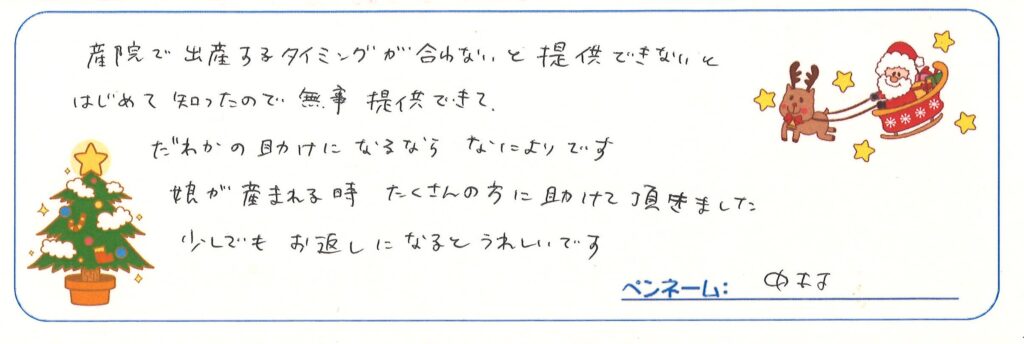 産院で出産するタイミングが合わないと提供できないと
はじめて知ったので無事提供できて、
だれかの助けになるなら なによりです
娘が産まれる時 たくさんの方に助けて頂きました
少しでも お返しになるとうれしいです
ペンネーム: ゆなな